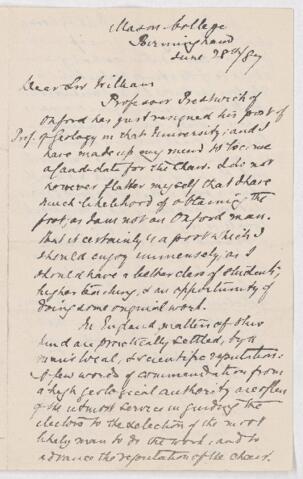 Mason College
Birmingham
June 28th/87
Dear Sir William
Professor Prestwich of
Oxford has just resigned his post of
Prof. of Geology in that University; and I
have made up my mind to become
a candidate for the Chair. I do not
however flatter myself that I have
much likelihood of obtaining the
post, as I am not an Oxford man.
But it certainly is a post which I
should enjoy immensely, as I
should have a better class of students;
higher teaching, & an opportunity of
doing some original work.
In England matters of this
kind are practically settled, by a
man's local, & scientific reputation.
A few words of commendation from
a high geological authority are often
of the utmost service in guiding the
electors to the selection of the most
likely man to do the work, and to
advance the reputation of the chair.